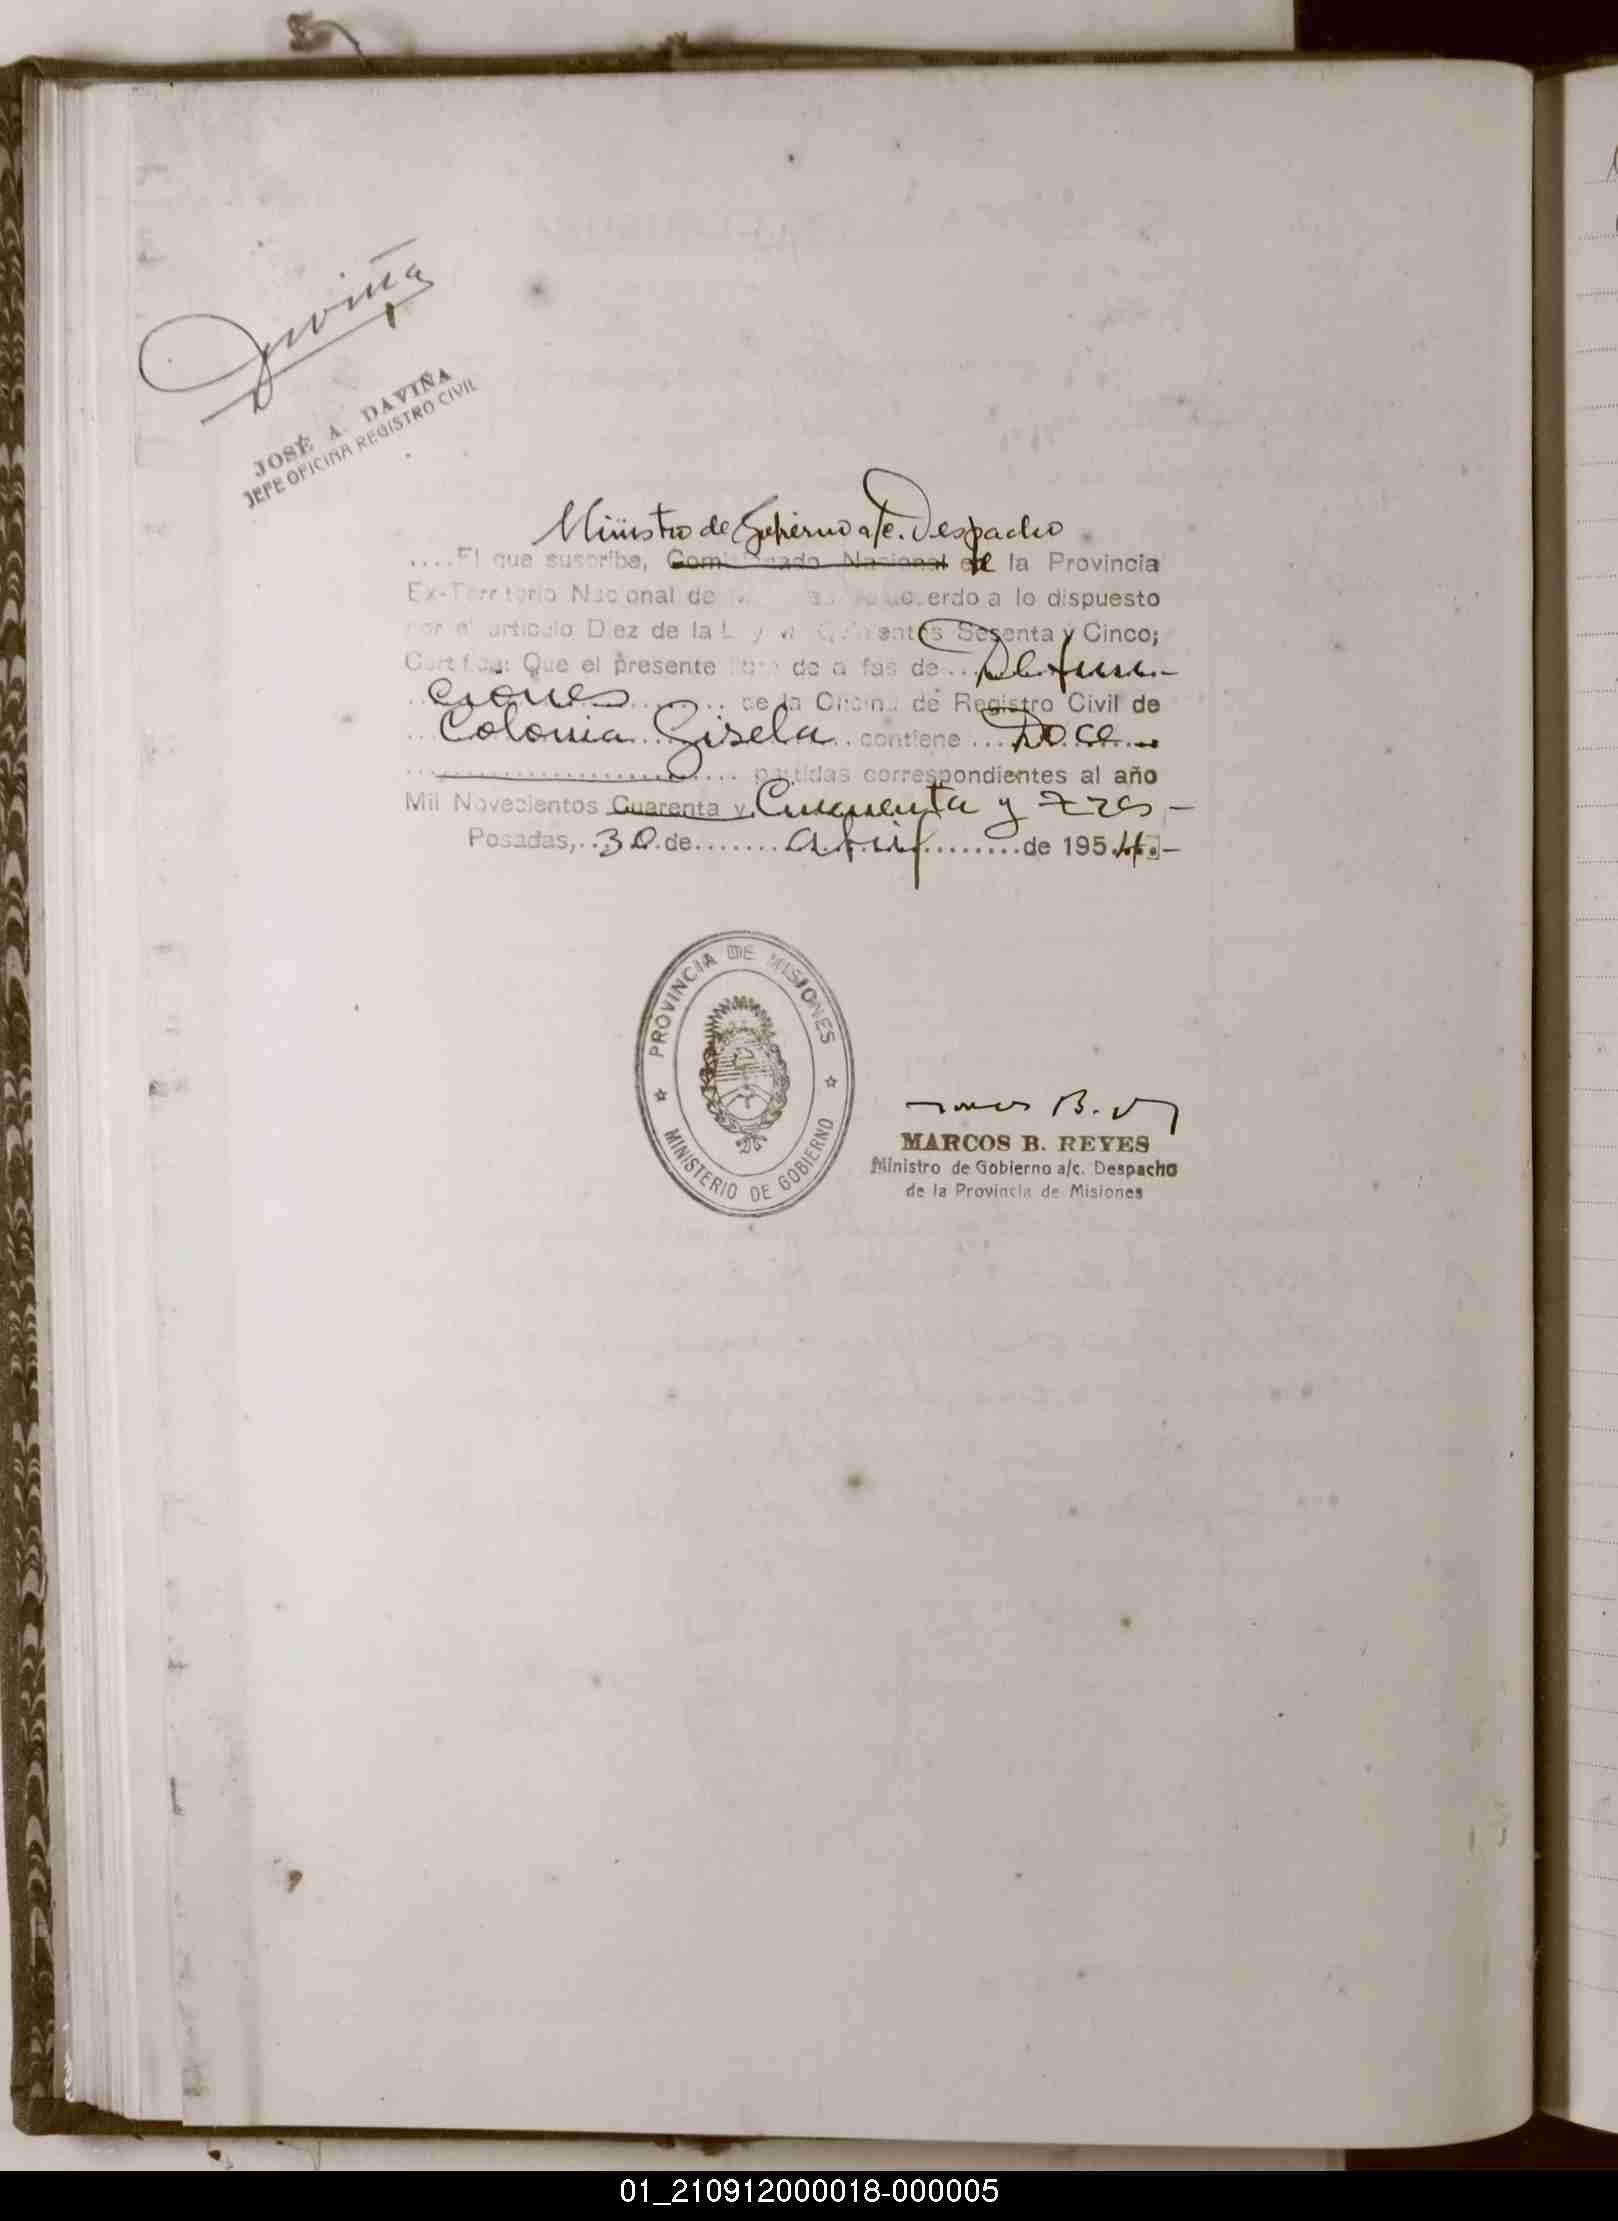 Daviña
JOSÉ A. DAVIÑA
JEFE OFICINA REGISTRO CIVIL
Ministro de Gobierno a/c. Despacho
....El que suscribe, Comisionado Nacional de la Provincia
Ex-Territorio Nacional de acuerdo a lo dispuesto
por el artículo Diez de la Sesenta y Cinco;
Certifica: Que el presente libro de a fas de ..Defun-
ciones........ de la Oficina de Registro Civil de
..Colonia Gisela.. contiene ...Doce...
........................ partidas correspondientes al año
Mil Novecientos Cuarenta y Cincuenta y Tres-
Posadas,..30.de.......abril.........de 1954.-
PROVINCIA DE MISIONES
MINISTERIO DE GOBIERNO
MARCOS B. REYES
Ministro de Gobierno a/c. Despacho
de la Provincia de Misiones
01_210912000018-000005